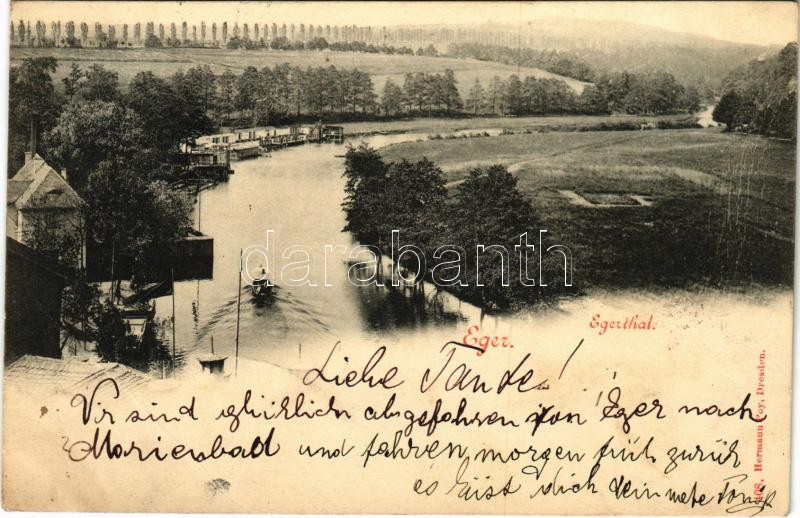 Eger.
Egerthal.
Liebe Tante!
Wir sind glücklich abgefahren von Eger nach
Marienbad und fahren morgen früh zurück
es küsst dich
Hermann Poy, Dresden.
darabanth